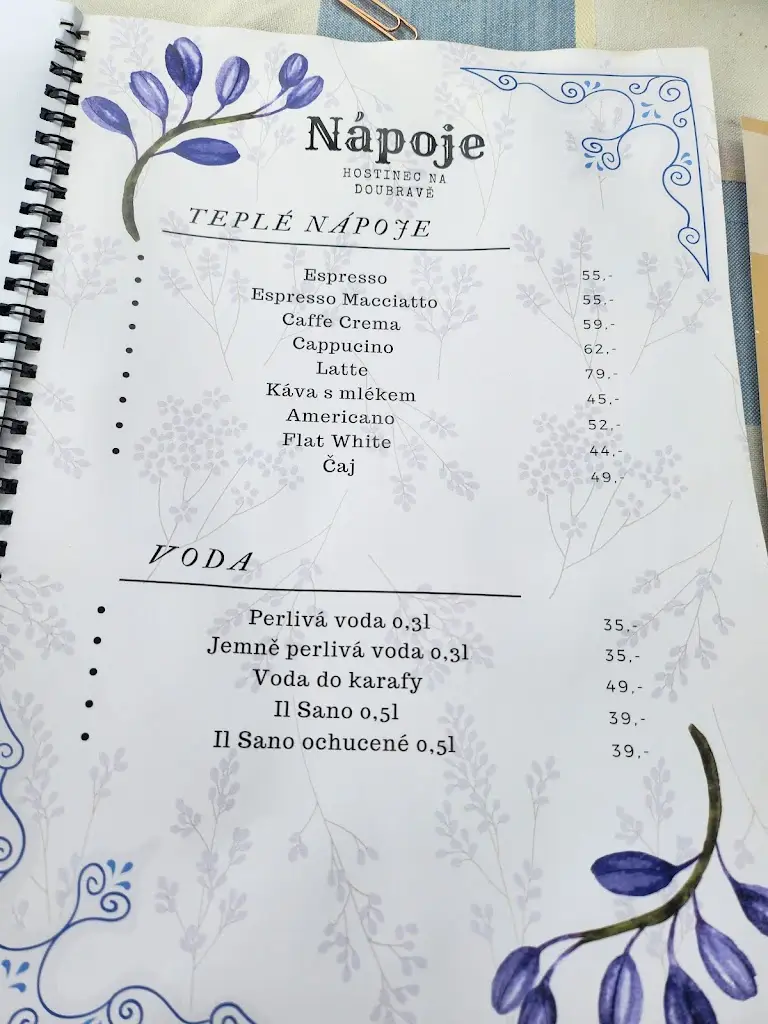 Nápoje
HOSTINEC NA
DOUBRAVĚ
TEPLÉ NÁPOJE
Espresso 55,-
Espresso Macciatto 55,-
Caffe Crema 59,-
Cappucino 62,-
Latte 79,-
Káva s mlékem 45,-
Americano 52,-
Flat White 44,-
Čaj 49,-
VODA
Perlivá voda 0,3l 35,-
Jemně perlivá voda 0,3l 35,-
Voda do karafy 49,-
Il Sano 0,5l 39,-
Il Sano ochucené 0,5l 39,-